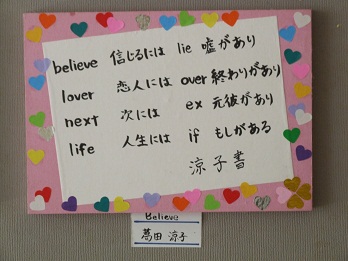 believe 信じるには lie 嘘があり
lover 恋人には over 終わりがあり
next 次には ex 元彼があり
life 人生には if もしがある
涼子書
Believe
萵田 涼子